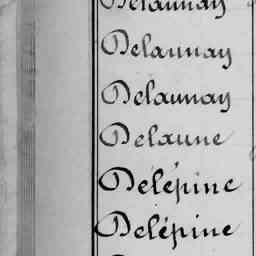 Delaunay
Delaunay
Delaunay
Delaune
Delépine
Delépine